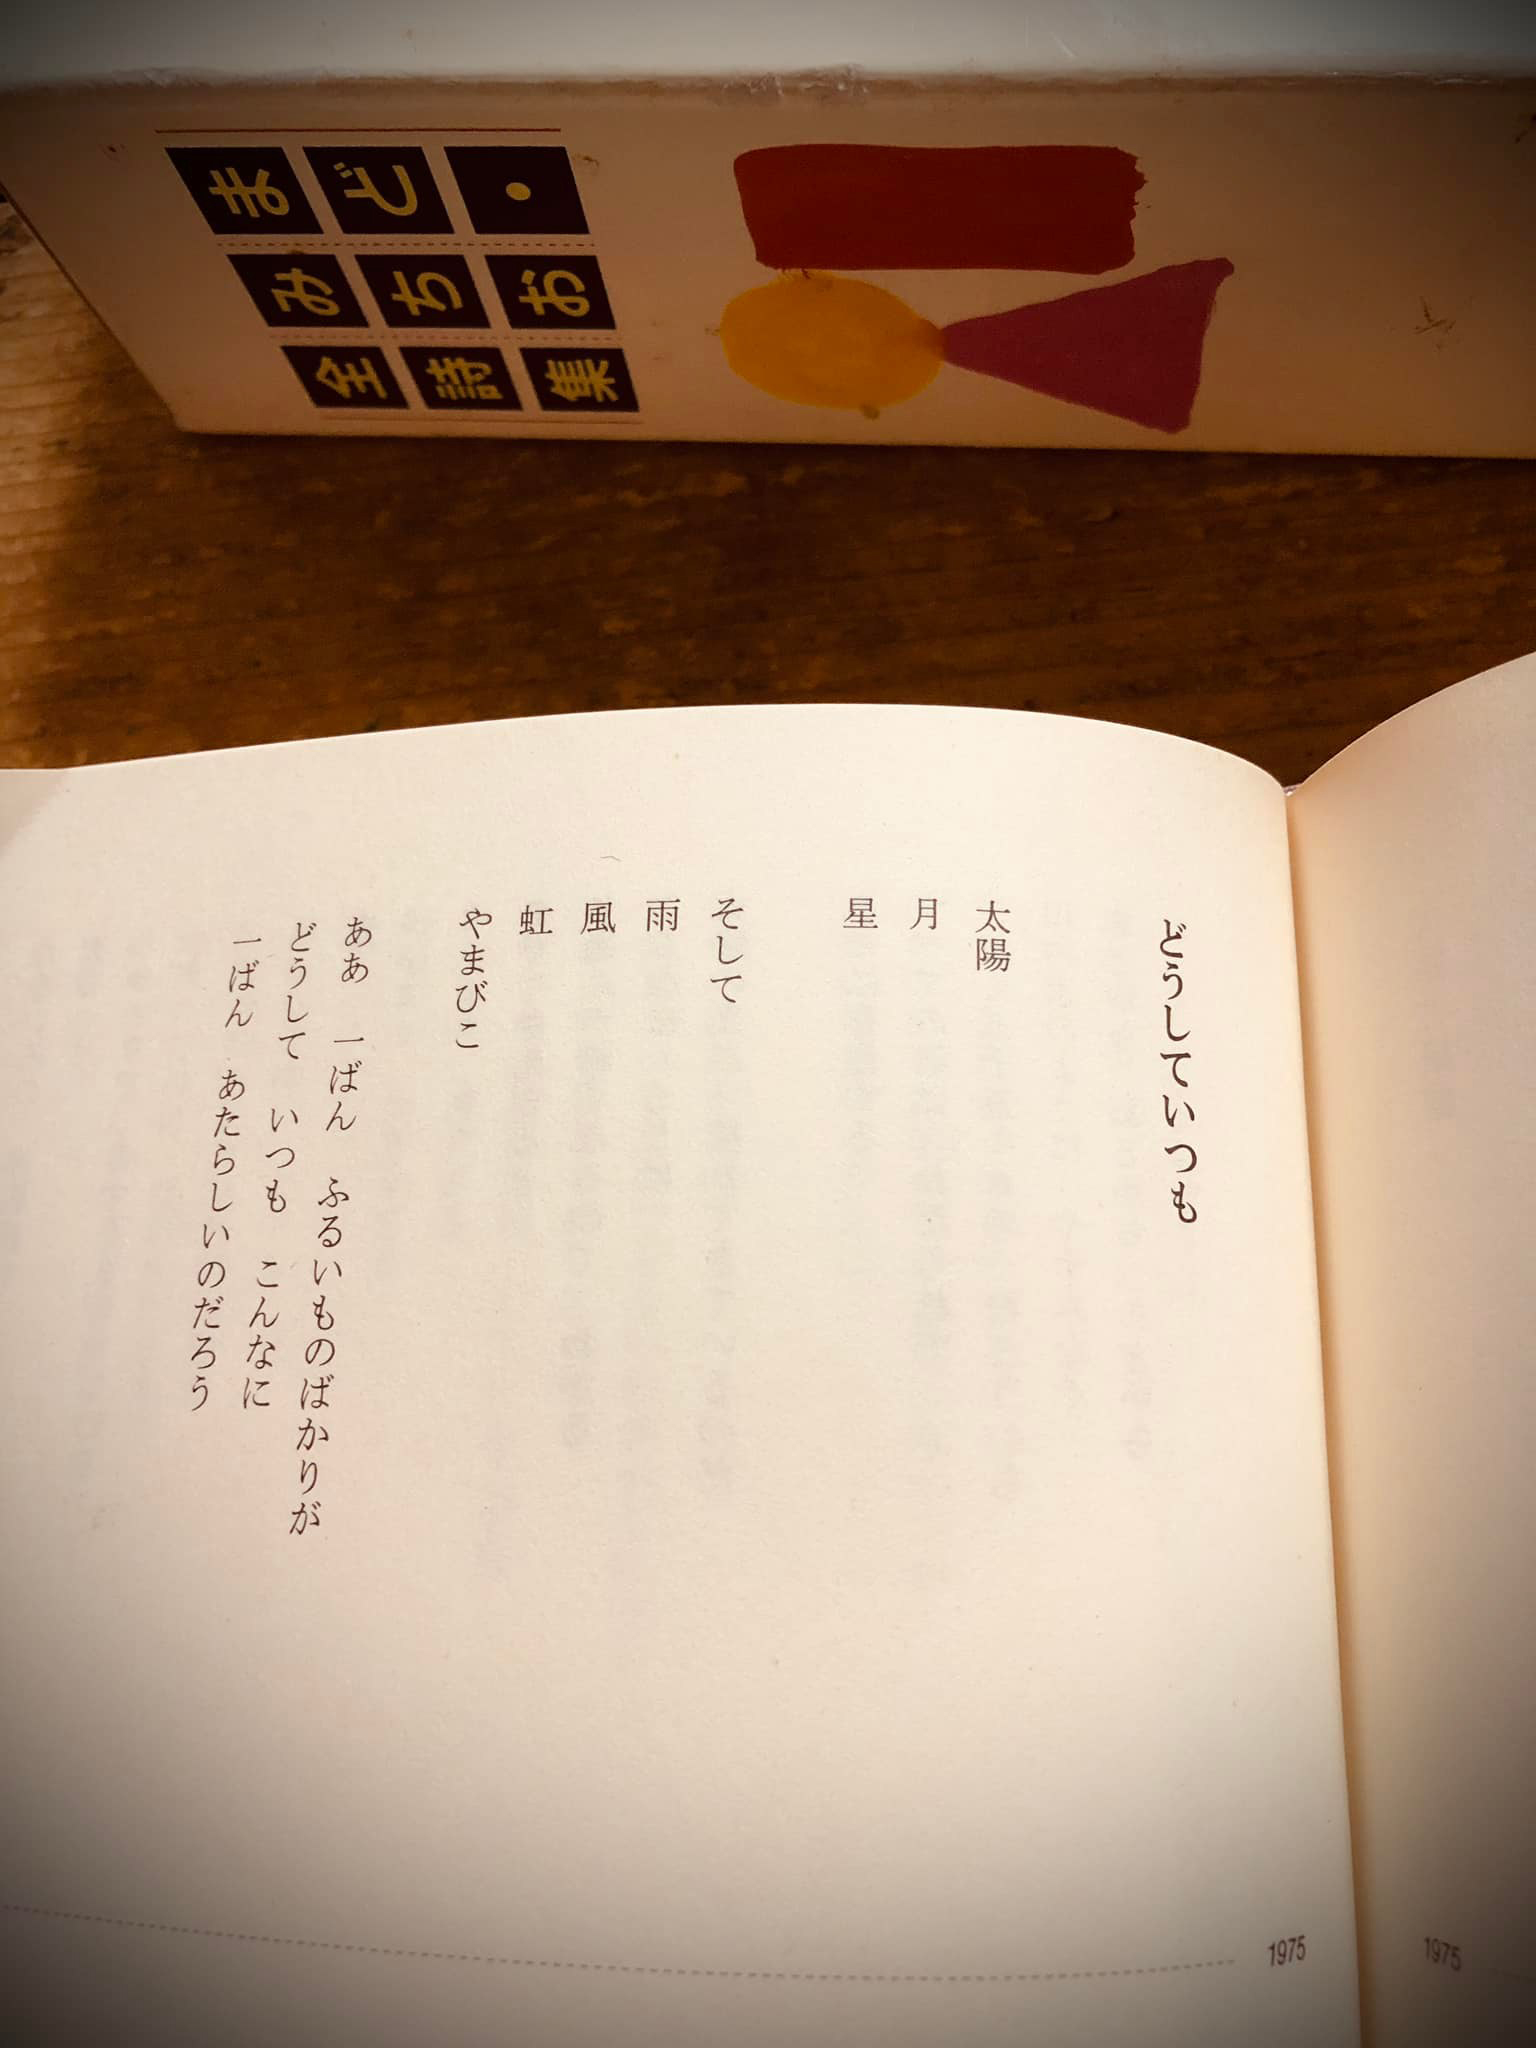 まど・
みちお
全詩集
どうしていつも
太陽
月
星
そして
雨
風
虹
やまびこ
ああ　一ばん　ふるいものばかりが
どうして　いつも　こんなに
一ばん　あたらしいのだろう
1975
1975